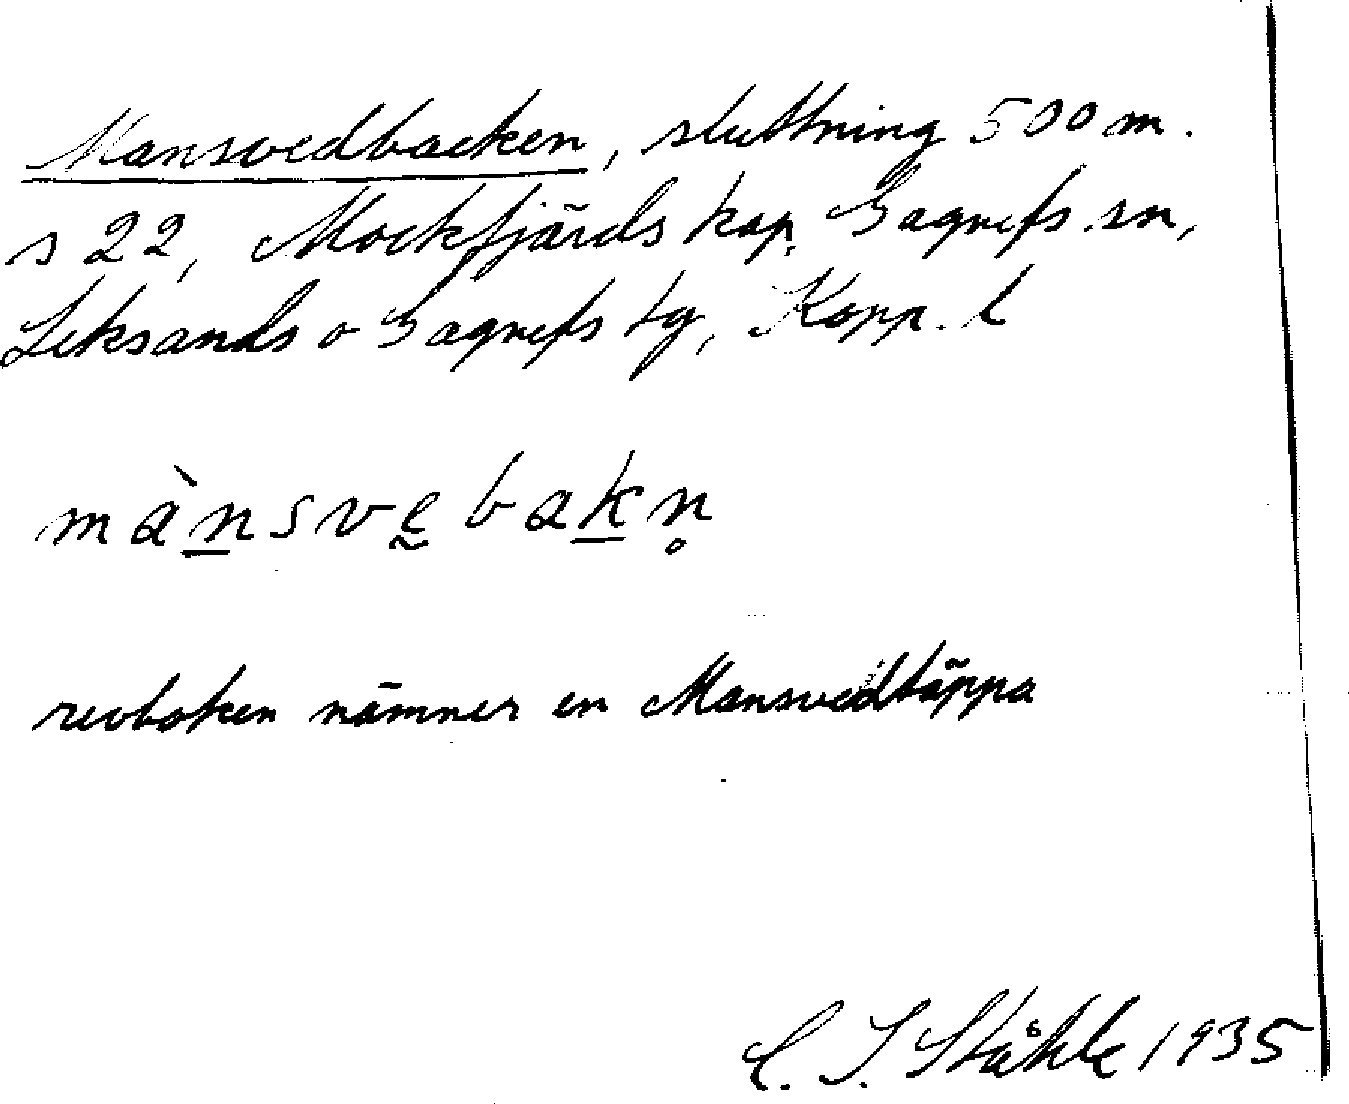 Mansvedbacken, sluttning 500 m.
s 22, Mockfjärds kap. Gagnefs sn,
Leksands o Gagnefs tg, Kopp. l
màn̲svḛbak̲n̥
revboken nämner en Mansvedtäppa
C. I. Ståhle 1935